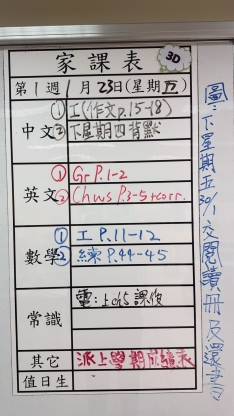 家課表
3D
第1週1月23日(星期五)
中文
①工(作文p.15-18)
②下星期四背默
英文
①Gr P.1-2
②Ch w5 P.3-5+corr.
數學
①工 P.11-12
②練 P.44-45
常識
電:上ch5課後
其它
派上學期成績表
值日生
圖:下星期五30/1交閱讀冊及還書